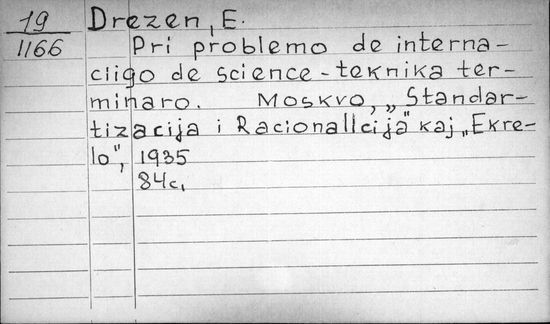 19
1166
Drezen, E.
Pri problemo de interna-
ciigo de science-teknika ter-
minaro. Moskvo, „Standar-
tizacija i Racionallcija" kaj „Ekre-
lo", 1935
84c,